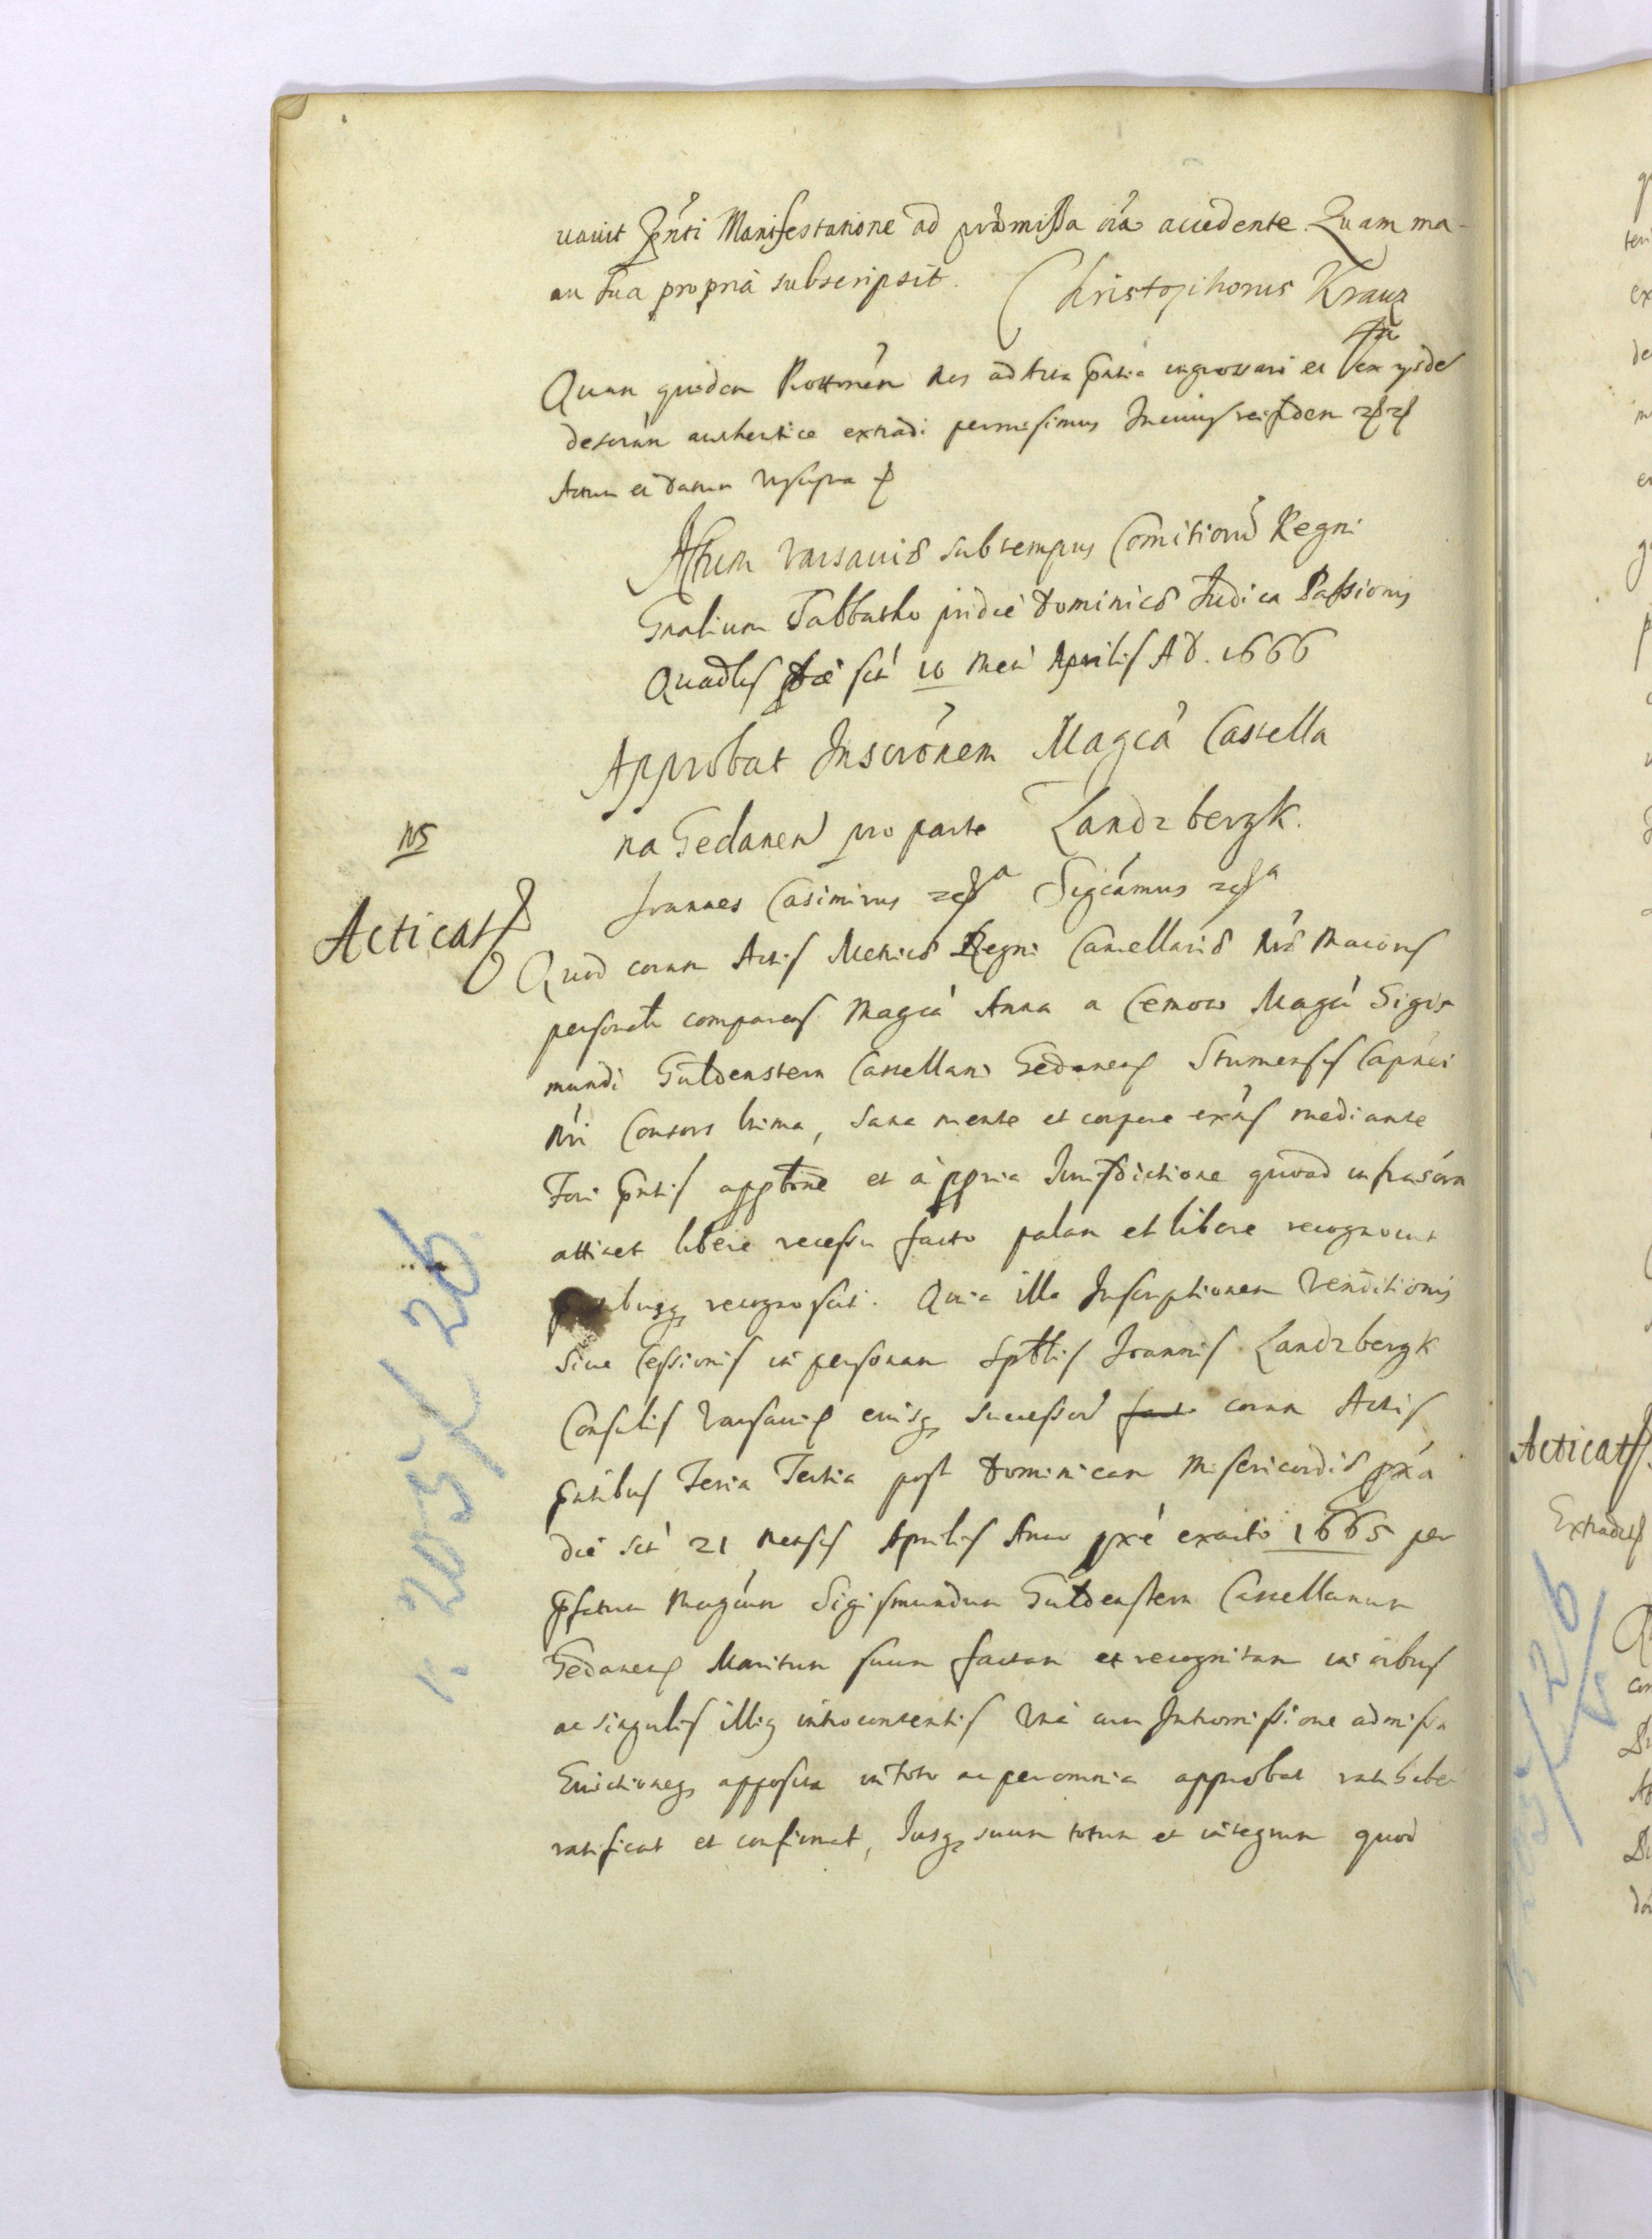 uauit Pnti Manifestatione ad praemissa oia accedente. Quam ma-
nu sua propria subscripsit. Christophorus Krauz
Quam quidem Prottonem Nos ad Acta pntia ingrossari et ex ysde
descram authentice extradi permisimus In cuius rei fidem
Actum et datum Vt supra
Actum Varsauiae sub tempus Comitioru Regni
Gnalium Sabbatho pridie Dominicae Iudica Passionis
Quadlis die sct 10 Mens Aprilis A D. 1666
Approbat Inscronem Magca Castella
na Gedanen pro parte Landzbergk.
105
Acticat
Ioannes Casimirus Sigcamus
Quod coram Actis Metricae Regni Cancellariae Nrae Maioris
personalr comparens Magca Anna a Cemow Magci Sigis
mundi Guldenstern Castellani Gedanens Stumensis Capnei
Nri Consors ltima, sana mente et corpore exns mediante
Fori pntis apptone et a ppria Iurisdictione quoad infrascrm
attinet libere recessu facto palam et libere recognouit
busq recognoscit. Quia illa Inscriptionem Venditionis
siue Cessionis in personam sptblis Ioannis Landzbergk
Consulis Varsauien eiusq successoru facto coram Actis
pntibus Feria Tertia post Dominicam Misericordiae pxa
die sct 21 Mensis Aprilis Anno pxe exacto 1665 per
pfatum Magcum Sigismundum Guldenstern Castellanum
Gedanens Maritum suum factam et recognitam in oibus
ac singulis illiq introcontentis Vna cum Intromissione admissa
Euictioneq apposita in toto ac per omnia approbat ratihabet
ratificat et confirmat, Iusq suum totum et integrum quod
1. 205/26
Acticat
Extradit